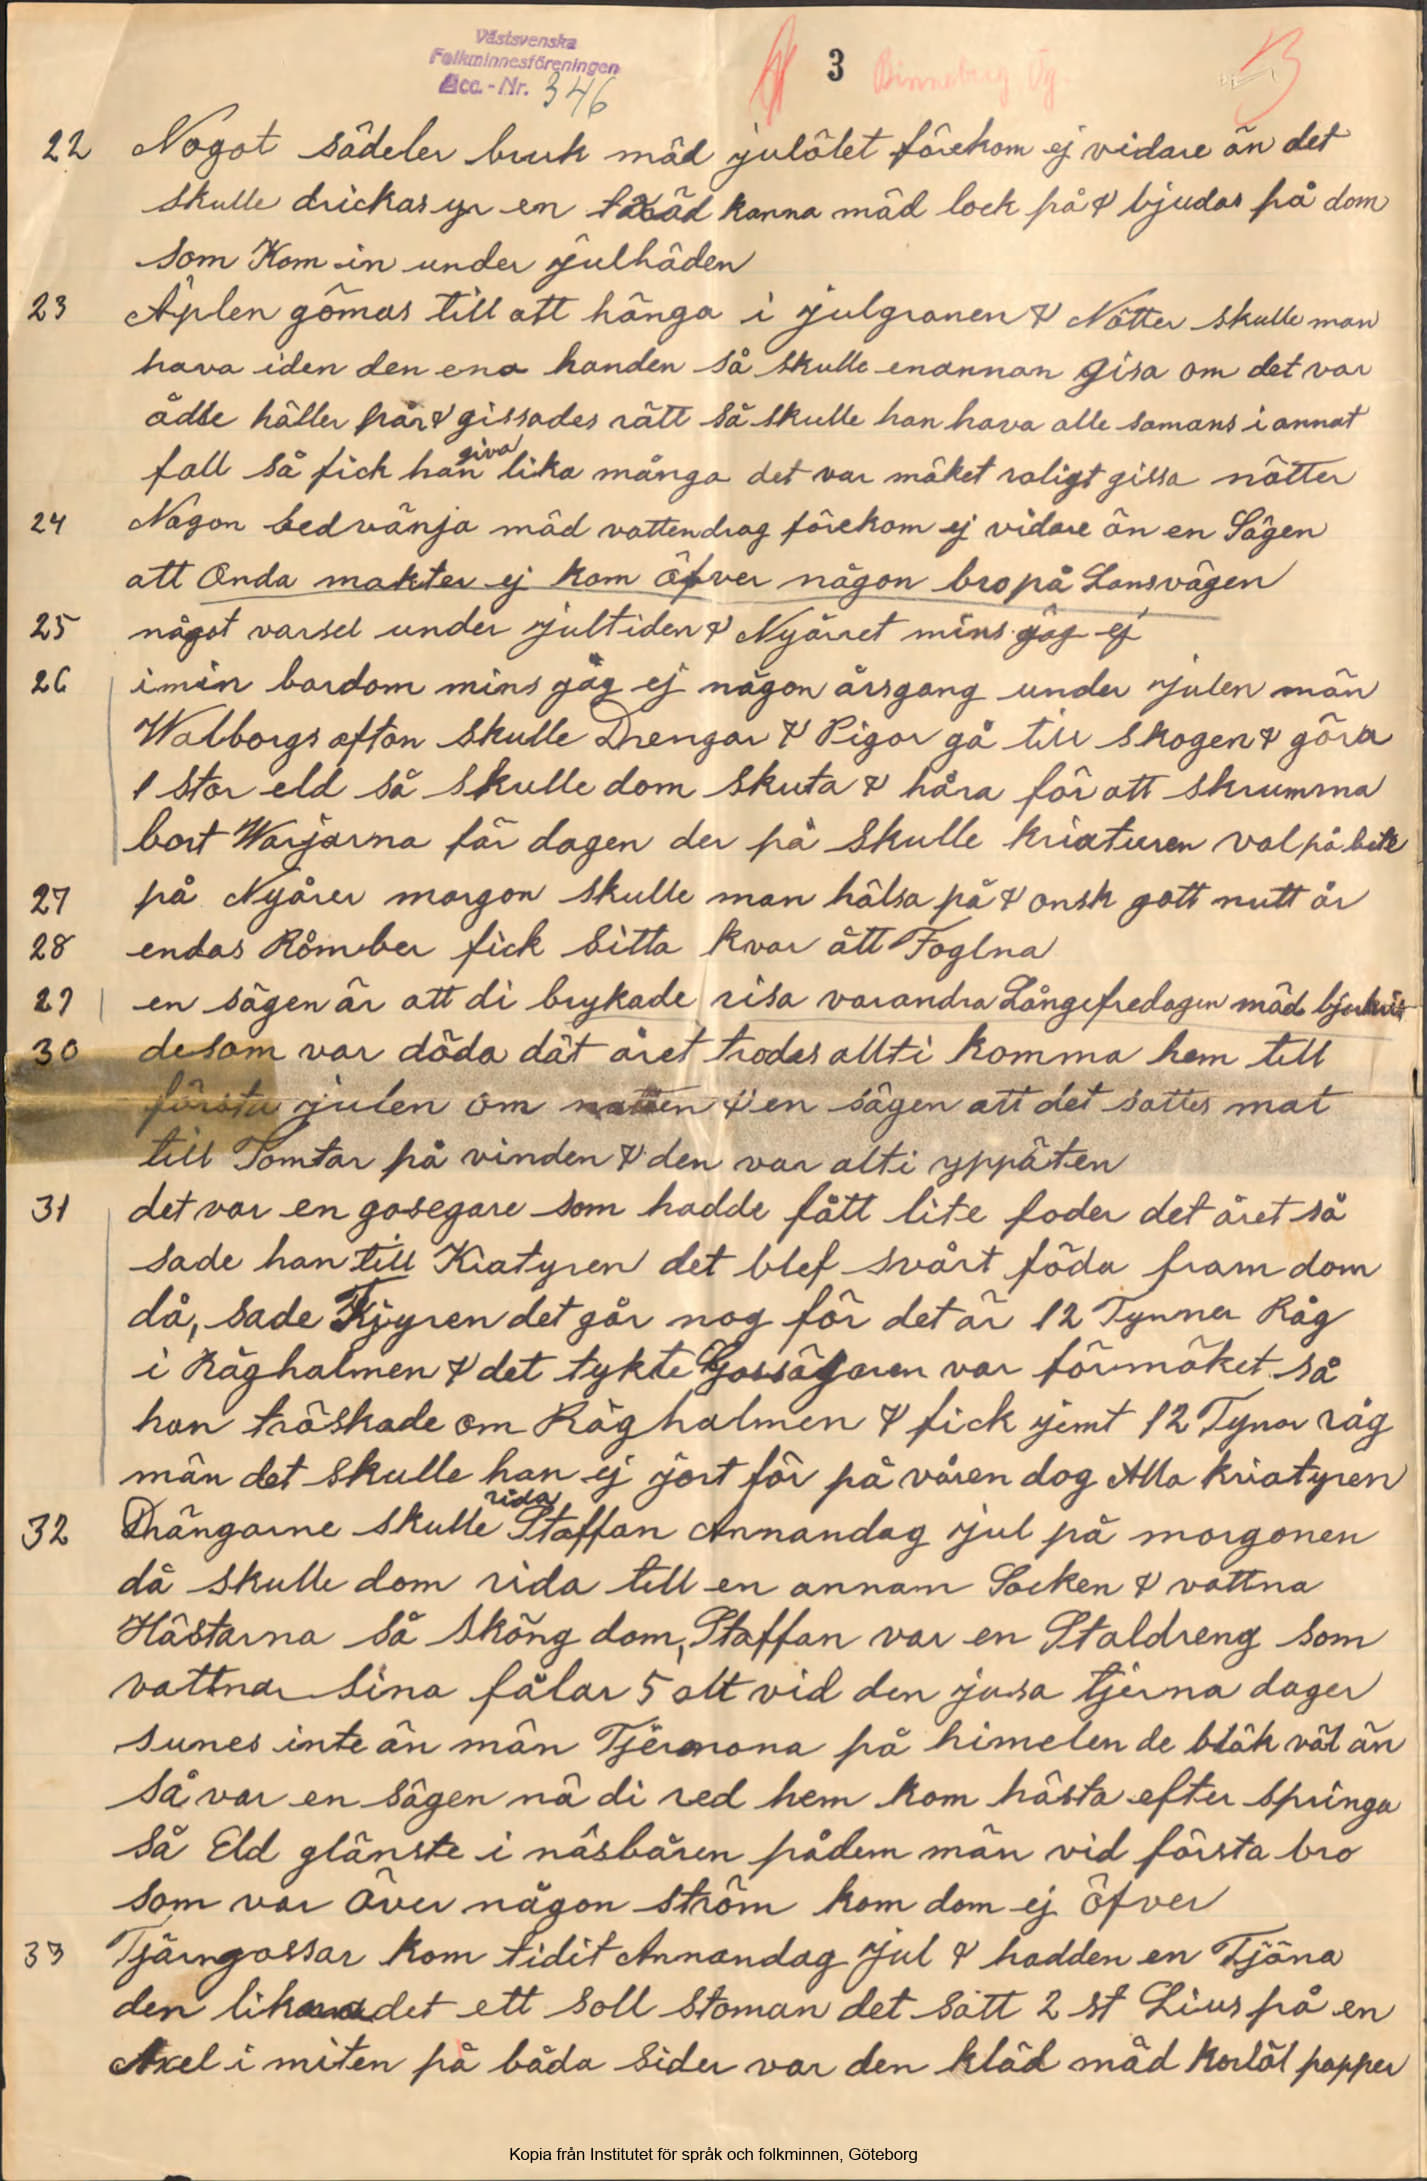 Västsvenska
Folkminnesföreningen
Acc.-Nr. 346
3 Binneberg Vg.
22 Nogot sådeler bruk mäd julölet förekom ej vidare än det
skulle drickas yr en kanna mäd lock på & bjudas på dom
som Kom in under julhäden
23 Äplen gömas till att hänga i julgranen & Nötter skulle man
hava iden den ena handen så skulle enannan gisa om det var
ådde häller pår & gissades rätt så skulle han hava alle samans i annat
fall så fick han giva lika många det var möket roligt gissa nötter
24 Någon bedvänja mäd vattendrag förekom ej vidare än en Sägen
att Onda makter ej kom öfver någon bro på Lansvägen
25 något varsel under jultiden & Nyårret mins jäg ej
26 i min bardom mins jäg ej någon årsgang under julen män
Walborgs afton skulle Drengar & Pigor gå till skogen & göra
1 stor eld så skulle dom skuta & håra för att skrumma
bort Warjarna får dagen der på skulle kriaturen val på bete
27 på Nyårer morgon skulle man hälsa på & onsk gott nutt år
28 endas Römber fick sitta kvar ått Foglna
29 en sägen är att di brykade risa varandra Långefredagen mäd bjorkris
30 desom var döda dät året trodes allti komma hem till
första julen om natten & en sägen att det sattes mat
till Tomtar på vinden & den var alti yppäten
31 det var en gosegare som hadde fått lite foder det året så
sade han till Kiatyren det blef svårt föda fram dom
då, sade Tjyren det går nog för det är 12 Tynner Råg
i Råghalmen & det tykte Gossägaren var förmöket så
han tröskade om Råghalmen & fick jemt 12 Tynor råg
män det skulle han ej jort för på våren dog Alla kriatyren
32 Drängarne skulle rida Staffan Annandag jul på morgonen
då skulle dom rida till en annam Socken & vattna
Hästarna så sköng dom, Staffan var en Staldreng som
vattnar sina fålar 5 alt vid den jusa tjerna dager
sunes inte än män Tjernona på himelen de bläk väl än
så var en sägen nä di red hem kom hästa efter springa
så Eld glänste i näsbåren pådem män vid första bro
som var över någon ström kom dom ej öfver
33 Tjärngossar kom tidit Annandag jul & hadden en Tjäna
den liknadet ett soll stoman det satt 2 st Lius på en
Axel i miten på båda sider var den kläd mäd korlät papper
Kopia från Institutet för språk och folkminnen, Göteborg